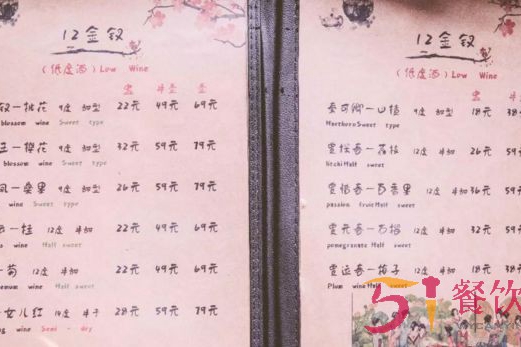 12金钗
(低度酒) Low Wine
壶 半壶 壶
钗一桃花 9度 甜型 22元 49元 69元
blossom wine Sweet type
王一樱花 9度 甜型 32元 59元 79元
blossom wine Sweet type
凤一桑果 9度 甜型 26元 59元 79元
wine Sweet type
一桂 12度 半甜 22元 49元 69元
wine Half sweet
一菊 12度 半甜 22元 49元 69元
wine Half sweet
女儿红 14度 半干 28元 59元 79元
wine Semi - dry
12金钗
(低度酒) Low Wine
秦可卿一山楂 9度 甜型 18元 38元
Hawthorn Sweet type
史湘云一荔枝 12度 半甜 26元 59元
litchi Half sweet
一百香果 12度 半甜 36元 59元
passion fruit Half sweet
一石榴 12度 半甜 32元 59元
pomegranate Half sweet
一梅子 12度 半甜 18元 38元
Plum wine Half sweet
51餐饮